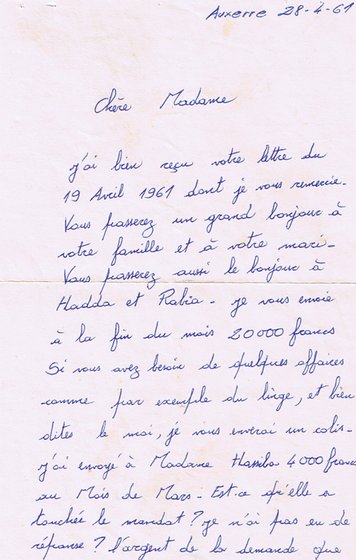 Auxerre 28-4-61
Chère Madame
j'ai bien reçu votre lettre du
19 Avril 1961 dont je vous remercie-
Vous passerez un grand bonjour à
votre famille et à votre mari-
Vous passerez aussi le bonjour à
Hadda et Rabia - je vous envoie
à la fin du mois 20000 francs
Si vous avez besoin de quelques affaires
comme par exemple du linge, et bien
dites le moi, je vous enverai un colis-
j'ai envoyé à Madame Hassiba 4000 francs
au Mois de Mars - Est-ce qu'elle a
touchée le mandat? je n'ai pas eu de
réponse? l'argent de la demande que